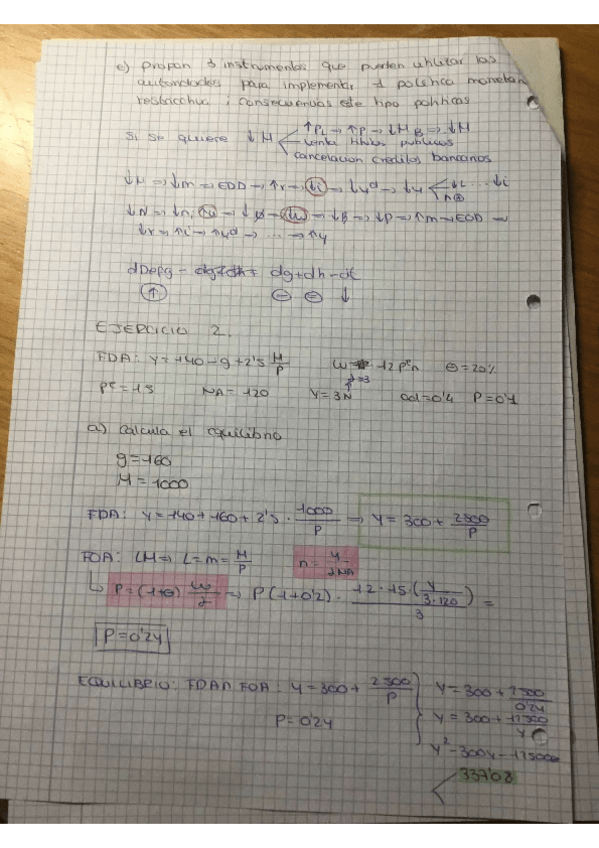 c) propon 3 instrumentos que pueden utilizar las
autoridades para implementar 1 política monetaria
restrictiva y consecuencias este tipo politicas
Si se quiere ↓M
↑PL → ↑P → ↓MB → ↓M
venta títulos publicos
cancelacion creditos bancarios
↓M → ↓m → EDD → ↑r → ↓i → ↓yd → ↓y
dDepg = dg + dh - dt
EJERCICIO 2.
FDA: Y = 140 - g + 2's M/P W = 12 Pe n θ = 20%
Pe = 1'5 NA = 120 Y = 3N ad = 0'4 P = 0'1
a) Calcula el equilibrio
g = 160
M = 1000
FDA: Y = 140 + 160 + 2's · 1000/P → Y = 300 + 2500/P
FOA: LM → L = m = M/P n = Y/λNA
P = (1+θ) W/λ → P(1+0'2) · 12 · 15 · (Y/3·120)/3 =
P = 0'2Y
EQUILIBRIO: FDA ∩ FOA: Y = 300 + 2500/P Y = 300 + 2500/0'2Y
P = 0'2Y Y = 300 + 12500/Y
Y² - 300Y - 12500
337'08